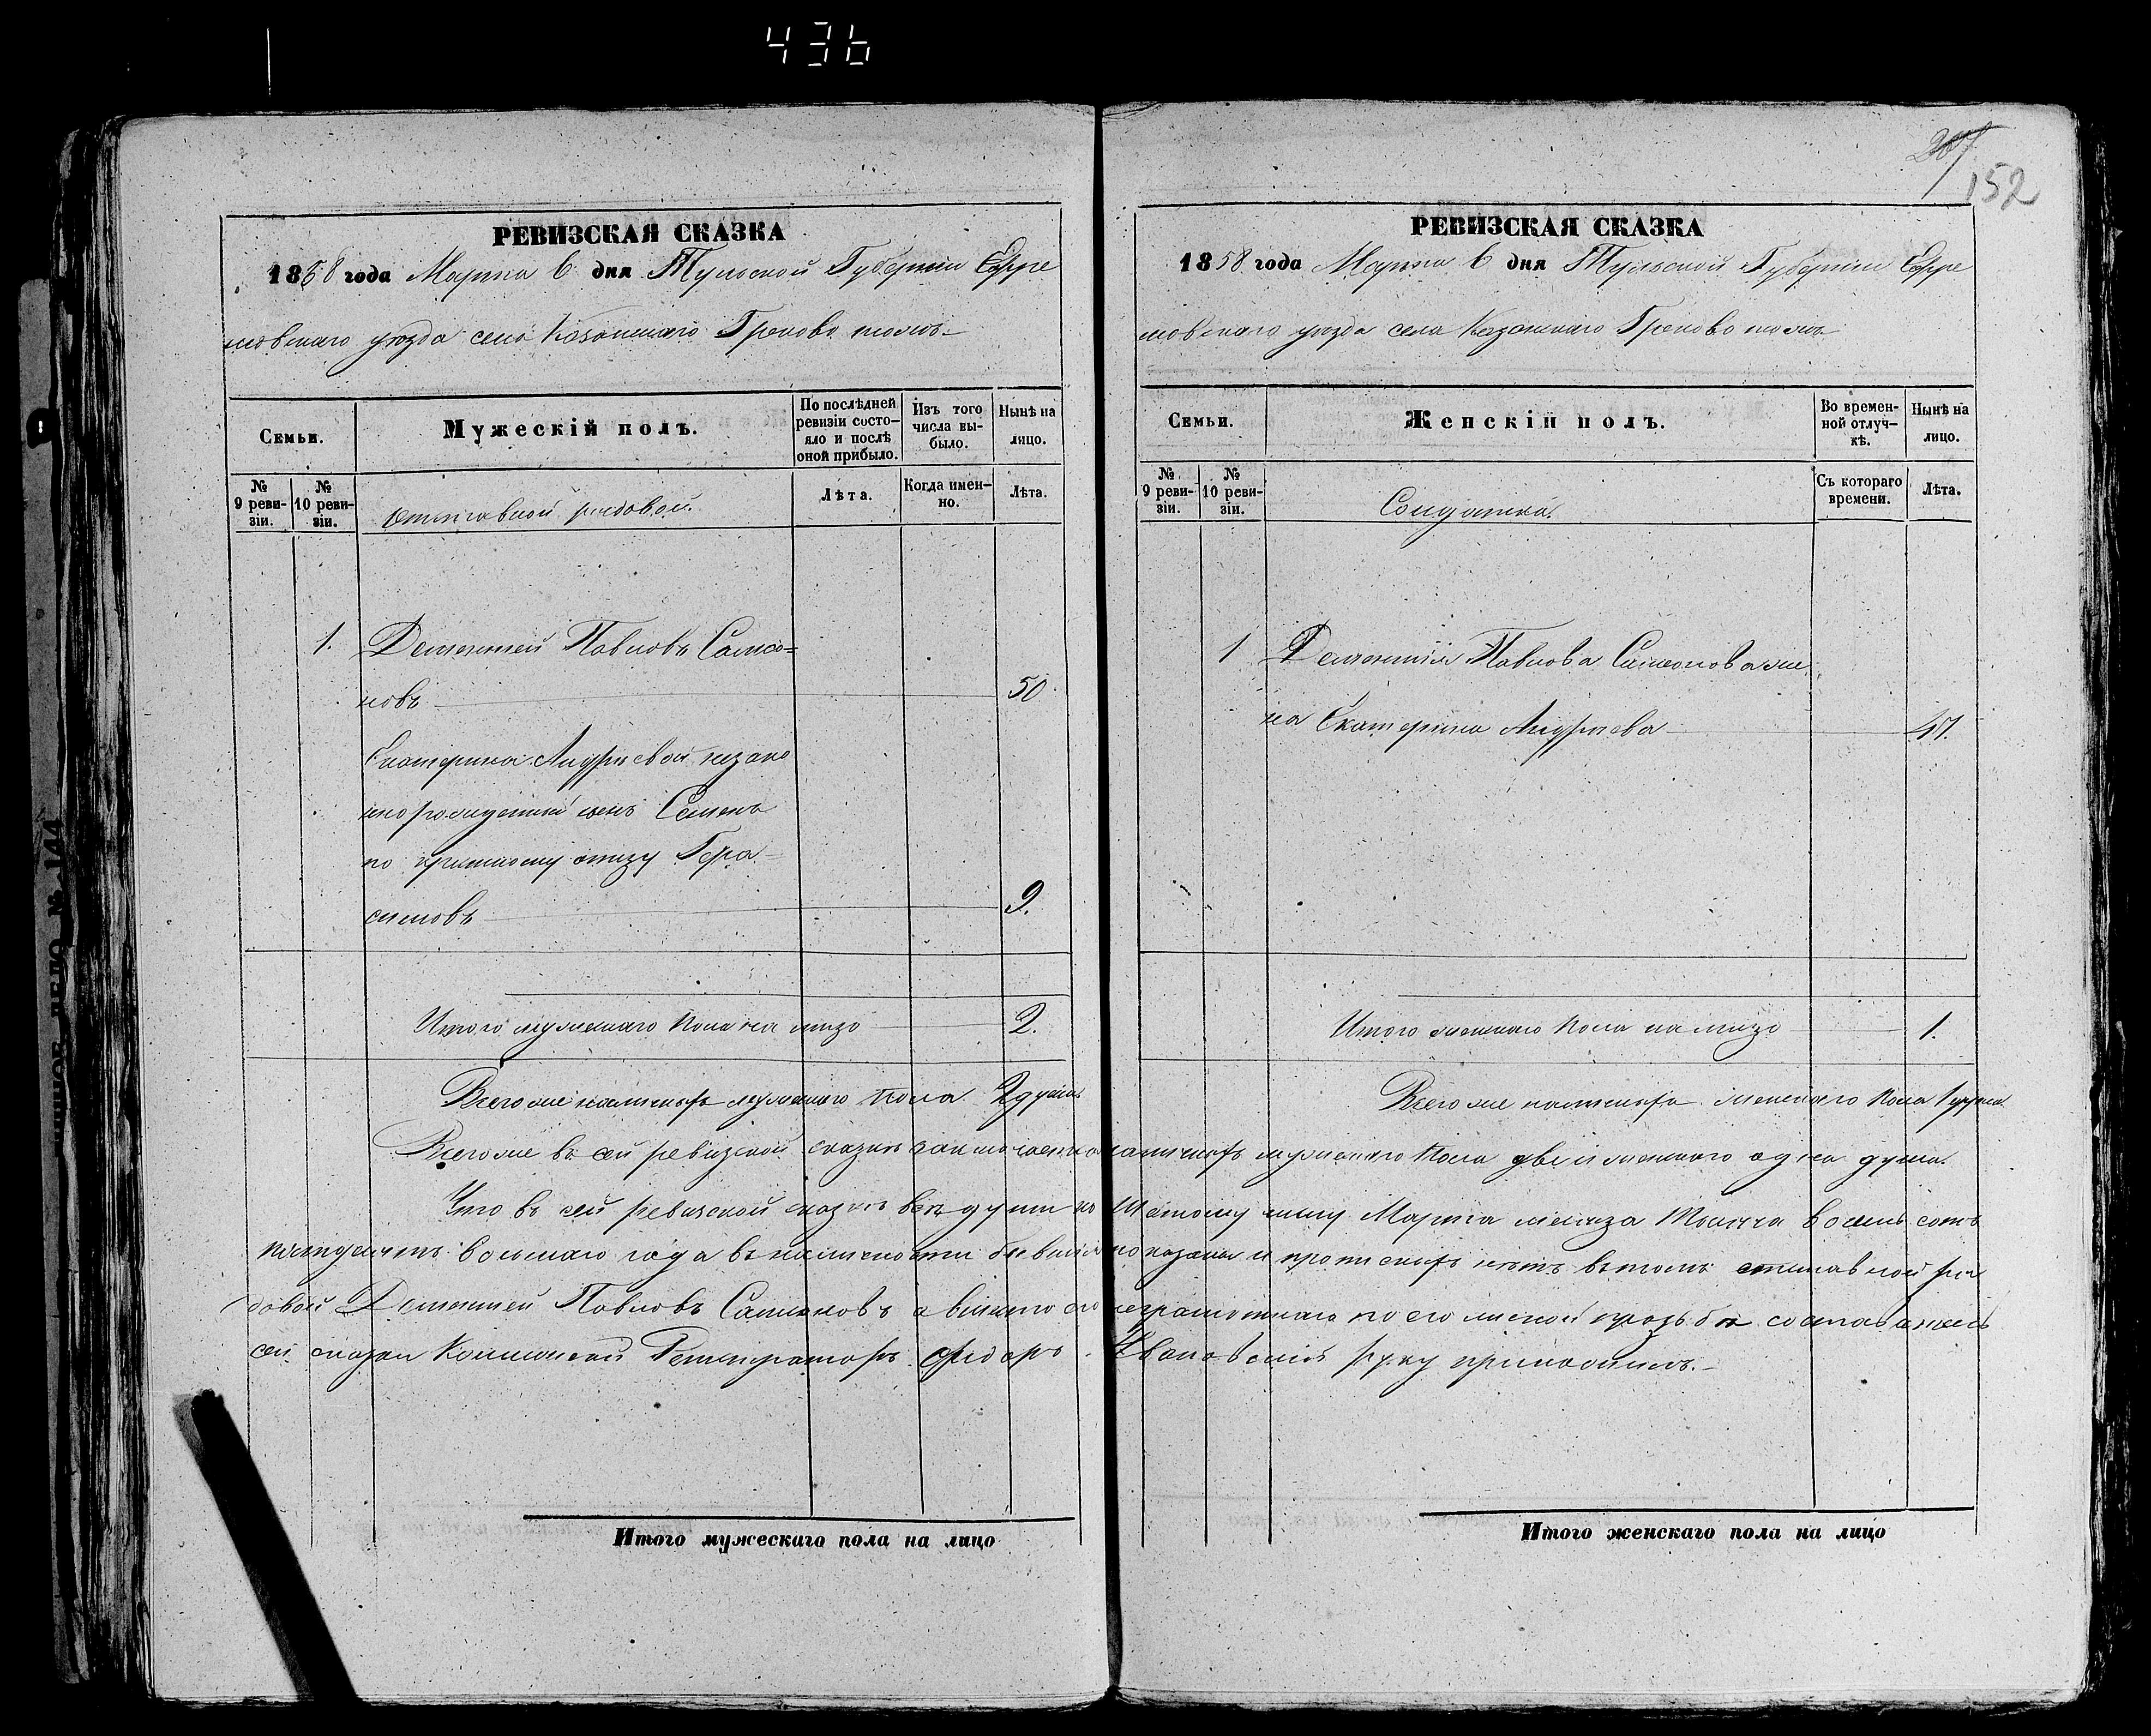 436
207
152
РЕВИЗСКАЯ СКАЗКА
1858 года Марта 6 дня Тульской Губернии Ефре
мовскаго уѣзда села Казанскаго Греково тожъ
Семьи.
Мужескій полъ.
По послѣдней ревизіи состо-
яло и послѣ
оной прибыло.
Изъ того
числа вы-
было.
Нынѣ на
лицо.
№
9 реви-
зіи.
№
10 реви-
зіи.
Отставной рядовой.
Лѣта.
Когда имен-
но.
Лѣта.
1. Дементей Павловъ Самсо=
новъ 50
Екатерины Андреевой незако
норожденный сынъ Семенъ
по крестному отцу Гера=
симовъ 9.
Итого мужескаго пола на лицо 2.
Всего же налицо мужескаго пола 2 души
РЕВИЗСКАЯ СКАЗКА
1858 года Марта 6 дня Тульской Губернии Ефре
мовскаго уѣзда села Казанскаго Греково тожъ
Семьи.
Женскій полъ.
Во времен-
ной отлуч-
кѣ.
Нынѣ на
лицо.
№
9 реви-
зіи.
№
10 реви-
зіи.
Солдатка.
Съ котораго
времени.
Лѣта.
1 Дементія Павлова Самсонова же
на Екатерина Андреева 47.
Итого женскаго пола на лицо 1.
Всего же женскаго пола 1 душа
Всего же въ сей ревизской сказкѣ заключается мужескаго пола двѣ и женскаго одна душа.
Что въ сей ревизской сказкѣ всѣ души по шестому числу Марта месяца тысяча восемь сотъ
пятдесятъ восьмаго года въ наличности бывшія показаны и прописныхъ нѣтъ въ томъ отставной ря
довой Дементей Павловъ Самсоновъ а вместо его неграмотнаго по его личной прозьбѣ составитель
сей сказки Коллежской Регистраторъ Федоръ Ивановскій руку приложилъ.
Итого мужескаго пола на лицо
Итого женскаго пола на лицо